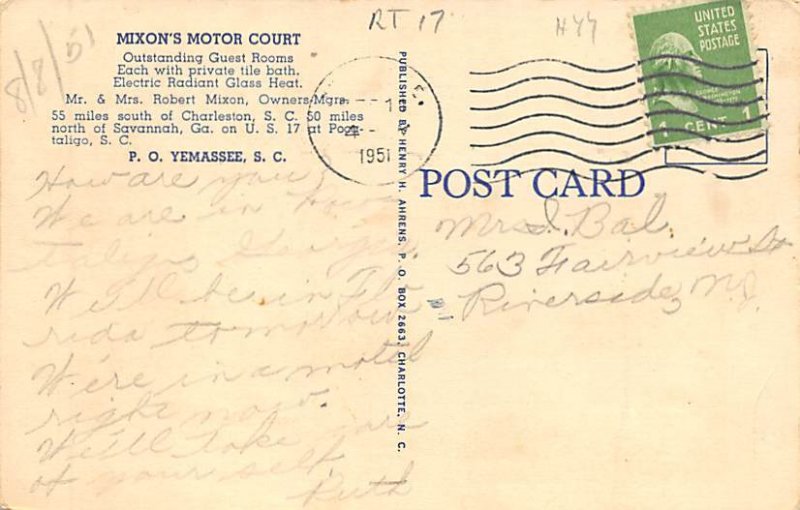 RT 17
H44
8/8/51
MIXON'S MOTOR COURT
Outstanding Guest Rooms
Each with private tile bath.
Electric Radiant Glass Heat.
Mr. & Mrs. Robert Mixon, Owners-Mgrs.
55 miles south of Charleston, S. C. 50 miles
north of Savannah, Ga. on U. S. 17 at Poco-
taligo, S. C.
P. O. YEMASSEE, S. C.
UNITED
STATES
POSTAGE
1 CENT 1
1951
PUBLISHED BY HENRY H. AHRENS, P. O. BOX 2663, CHARLOTTE, N. C.
POST CARD
How are you?
We are in
Georgia
We'll be in Flo
rida tomorrow
We're in a motel
right now.
We'll take
of your self
Ruth
Mrs. I. Bal
563 Fairview St
Riverside, N.J.